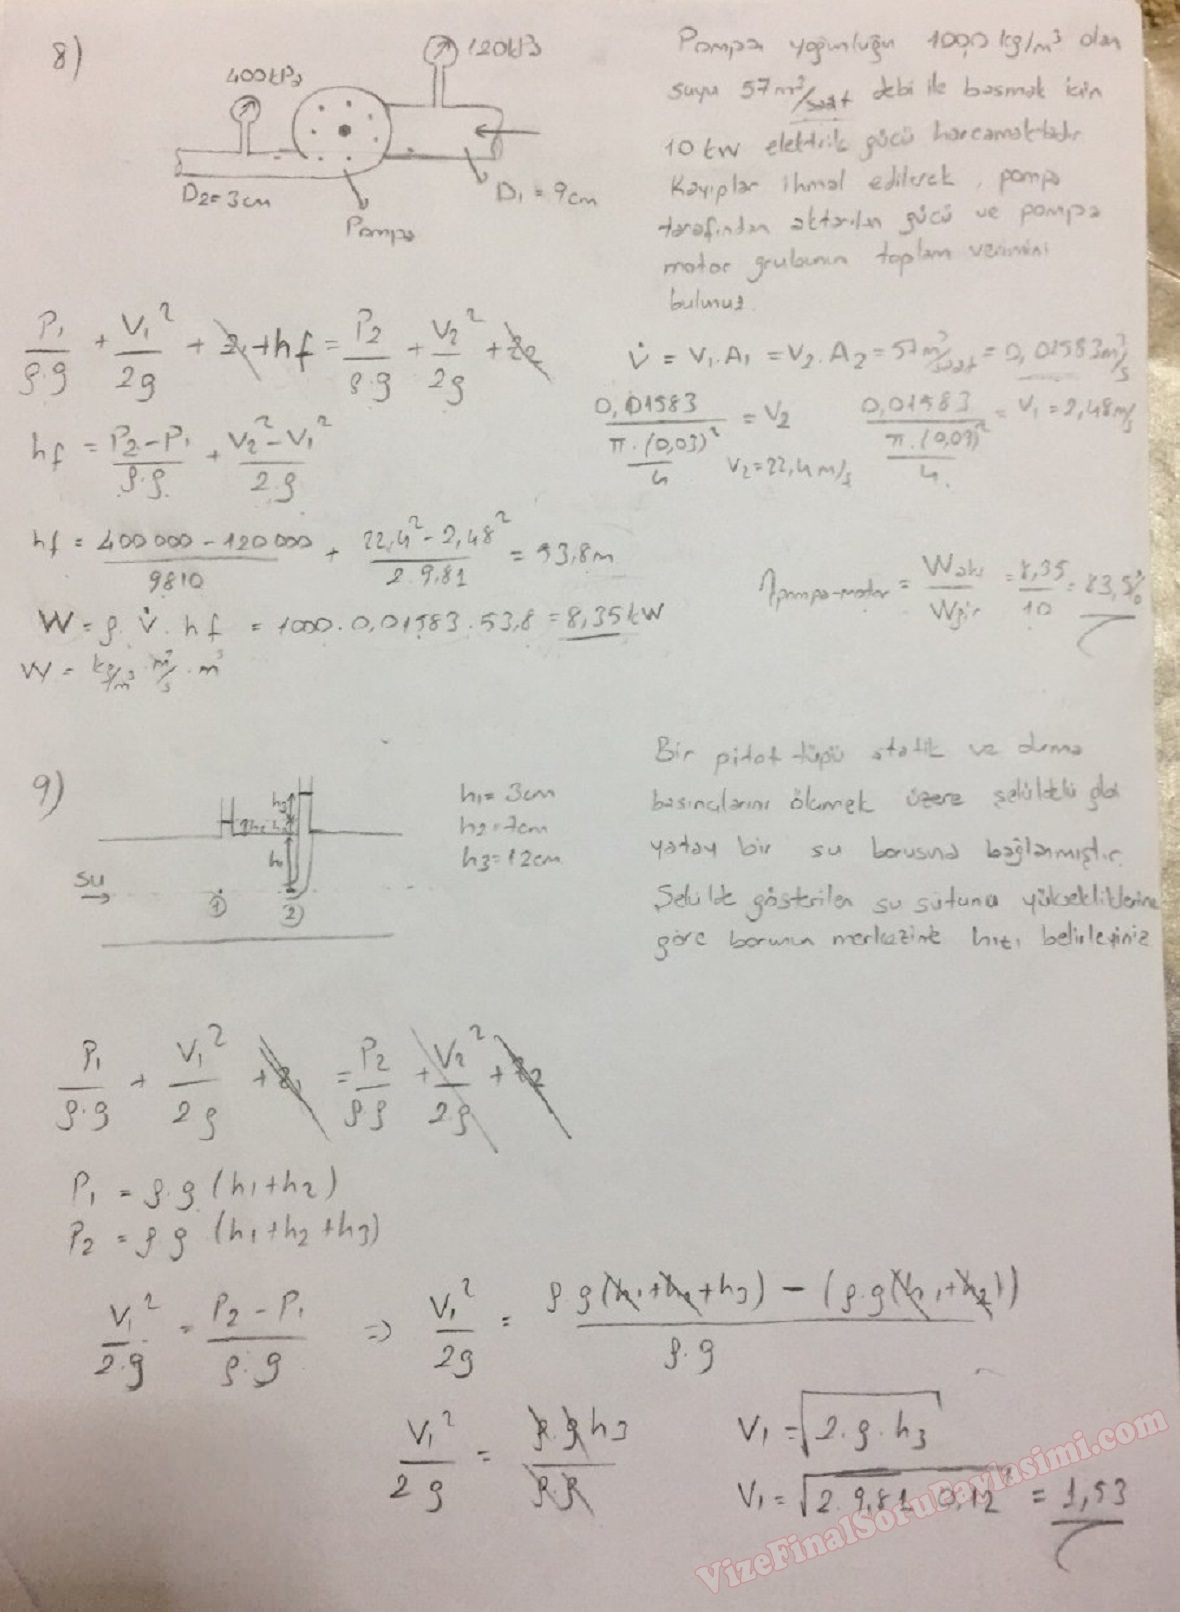 8)
400kPa
120kPa
D₂=3cm
Pompa
D₁=9cm
Pompa yoğunluğu 1000 kg/m³ olan
suyu 57m³/saat debi ile basmak için
10 kW elektrik gücü harcamaktadır
Kayıplar ihmal edilerek, pompa
tarafından aktarılan gücü ve pompa
motor grubunun toplam verimini
bulunuz.
P₁/ρ.g + V₁²/2g + z₁ + hf = P₂/ρ.g + V₂²/2g + z₂
V̇ = V₁.A₁ = V₂.A₂ = 57m³/saat = 0,01583m³/s
0,01583 / (π.(0,03)²/4) = V₂
V₂=22,4m/s
0,01583 / (π.(0,09)²/4) = V₁=2,48m/s
hf = P₂-P₁/ρ.g + V₂²-V₁²/2.g
hf = 400000-120000/9810 + 22,4²-2,48²/2.9,81 = 53,8m
W = ρ.V̇.hf = 1000.0,01583.53,8=8,35kW
W = kg/m³.m³/s.m³
ηpompa-motor = Wakı/Wgir = 8,35/10 = 83,5%
9)
h₃
h₁
Su
1)
2)
h₁=3cm
h₂=7cm
h₃=12cm
Bir pitot tüpü statik ve durma
basınçlarını ölçmek üzere şekildeki gibi
yatay bir su borusuna bağlanmıştır.
Şekilde gösterilen su sütunu yüksekliklerine
göre borunun merkezinde hızı belirleyiniz
P₁/ρ.g + V₁²/2g + z₁ = P₂/ρ.g + V₂²/2.g + z₂
P₁ = ρ.g (h₁+h₂)
P₂ = ρg (h₁+h₂+h₃)
V₁²/2.g = P₂-P₁/ρ.g => V₁²/2g = ρ.g(h₁+h₂+h₃) - (ρ.g(h₁+h₂))/ρ.g
V₁²/2g = ρ.g h₃/ρ.g
V₁=√2.g.h₃
V₁=√2.9,81.0,12 = 1,53
VizeFinalSoruPaylasimi.com